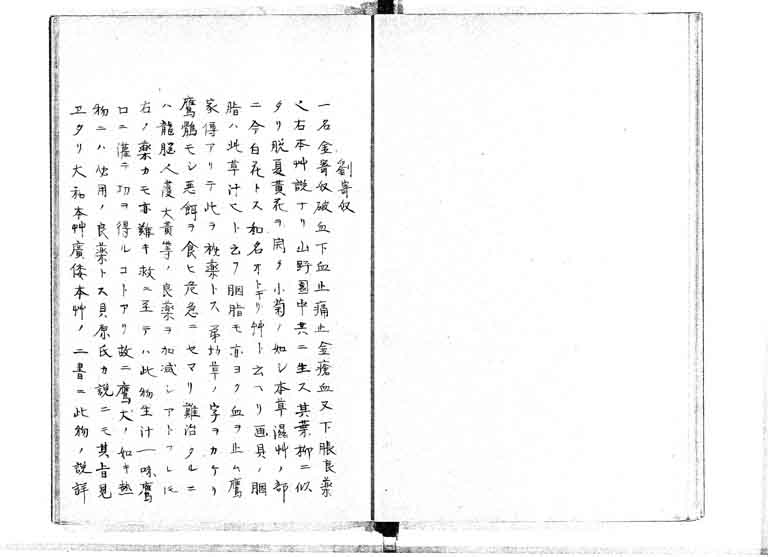 劉寄奴
一名金寄奴破血下血止痛止金瘡血又下脹良薬
也右本艸説ナリ山野園中共ニ生ス其葉柳ニ似
タリ脱夏黄花ヲ開ク小菊ノ如シ本草湿艸ノ部
ニ今白花トス和名オトギリ艸ト云ヘリ画具ノ胭
脂ハ此草汁ヒト云フ胭脂モ亦ヨク血ヲ止ム鷹
家傳アリテ此ヲ秘薬トス弟切草ノ字ヲカケリ
鷹鶻モシ悪餌ヲ食ヒ危急ニセマリ難治クルニ
ハ龍脳人廋大黄等ノ良薬ヲ加减シアトフレ𪜈
右ノ薬カモ亦難キ救ニ至テハ此物生汁一味鷹
口ニ灌テ切ヲ得ルコトアリ故ニ鷹犬ノ如キ熱
物ニハ必用ノ良薬トス貝原氏カ説ニモ其旨見
エタリ大和本艸廣倭本艸ノ二書ニ此物ノ説詳